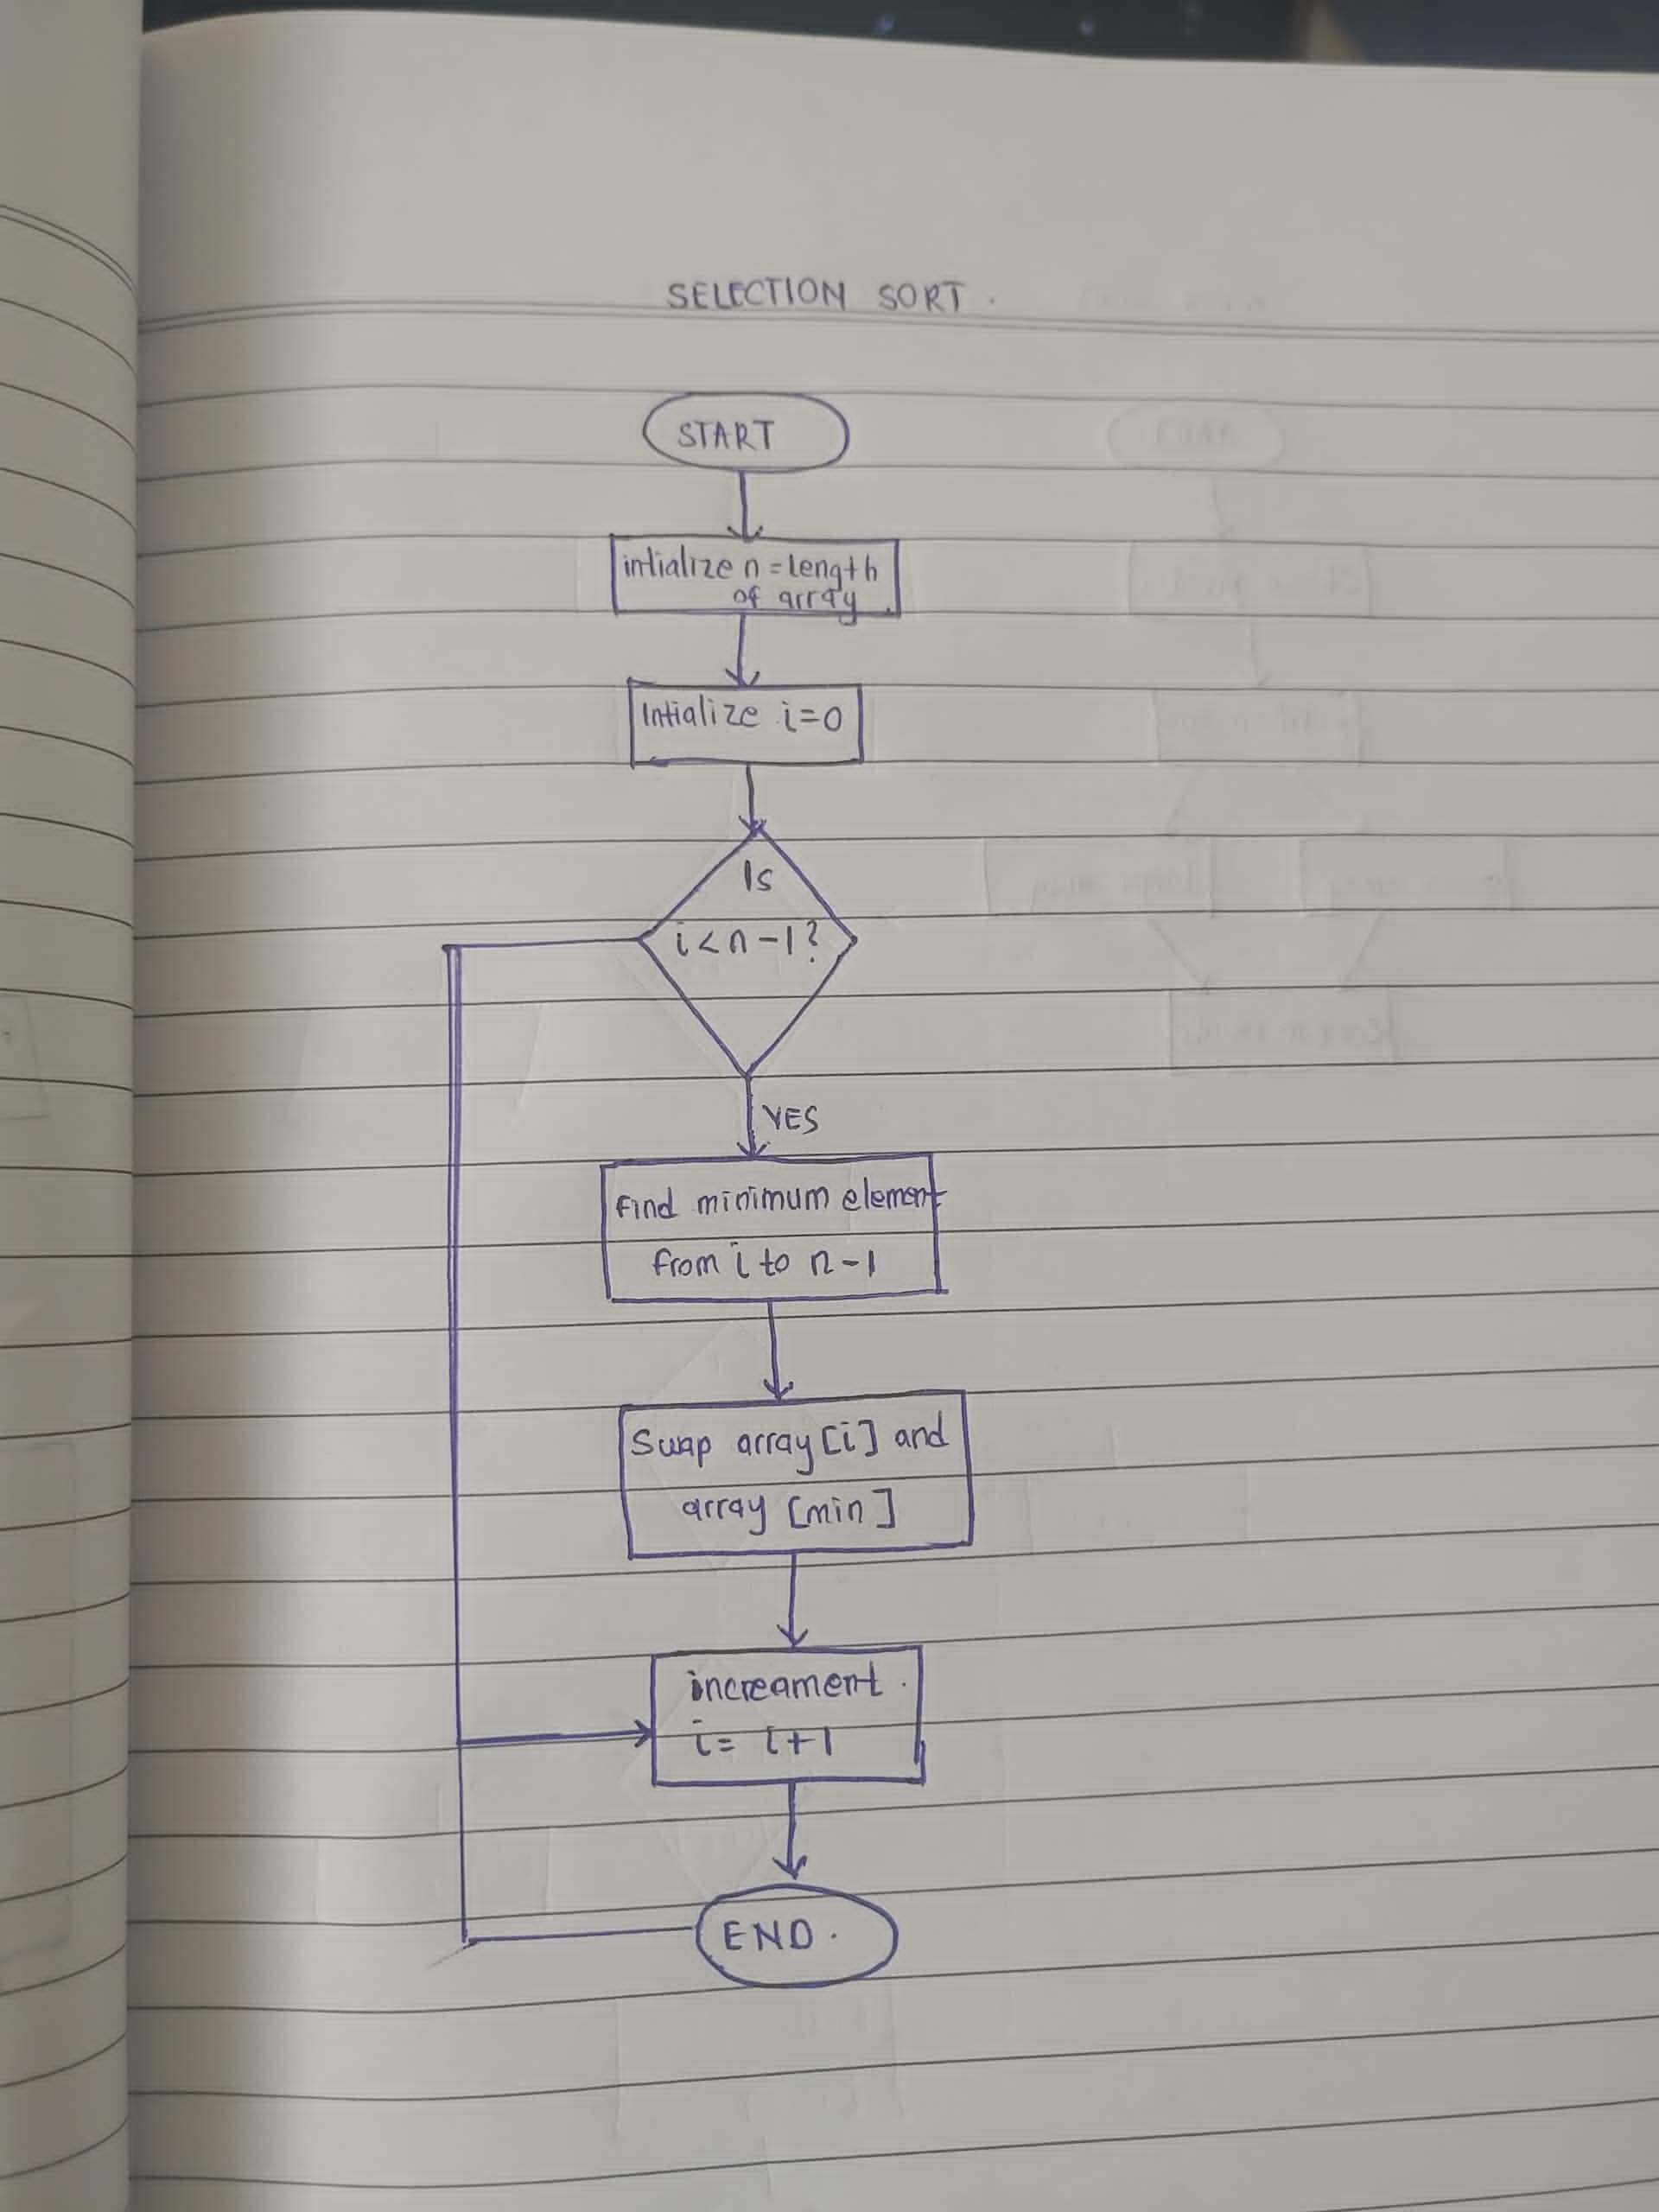 SELECTION SORT.
START
intialize n = length
of array
Intialize i=0
Is
i < n-1?
YES
Find minimum element
from i to n-1
Swap array [i] and
array [min]
increament.
i= i+1
END.